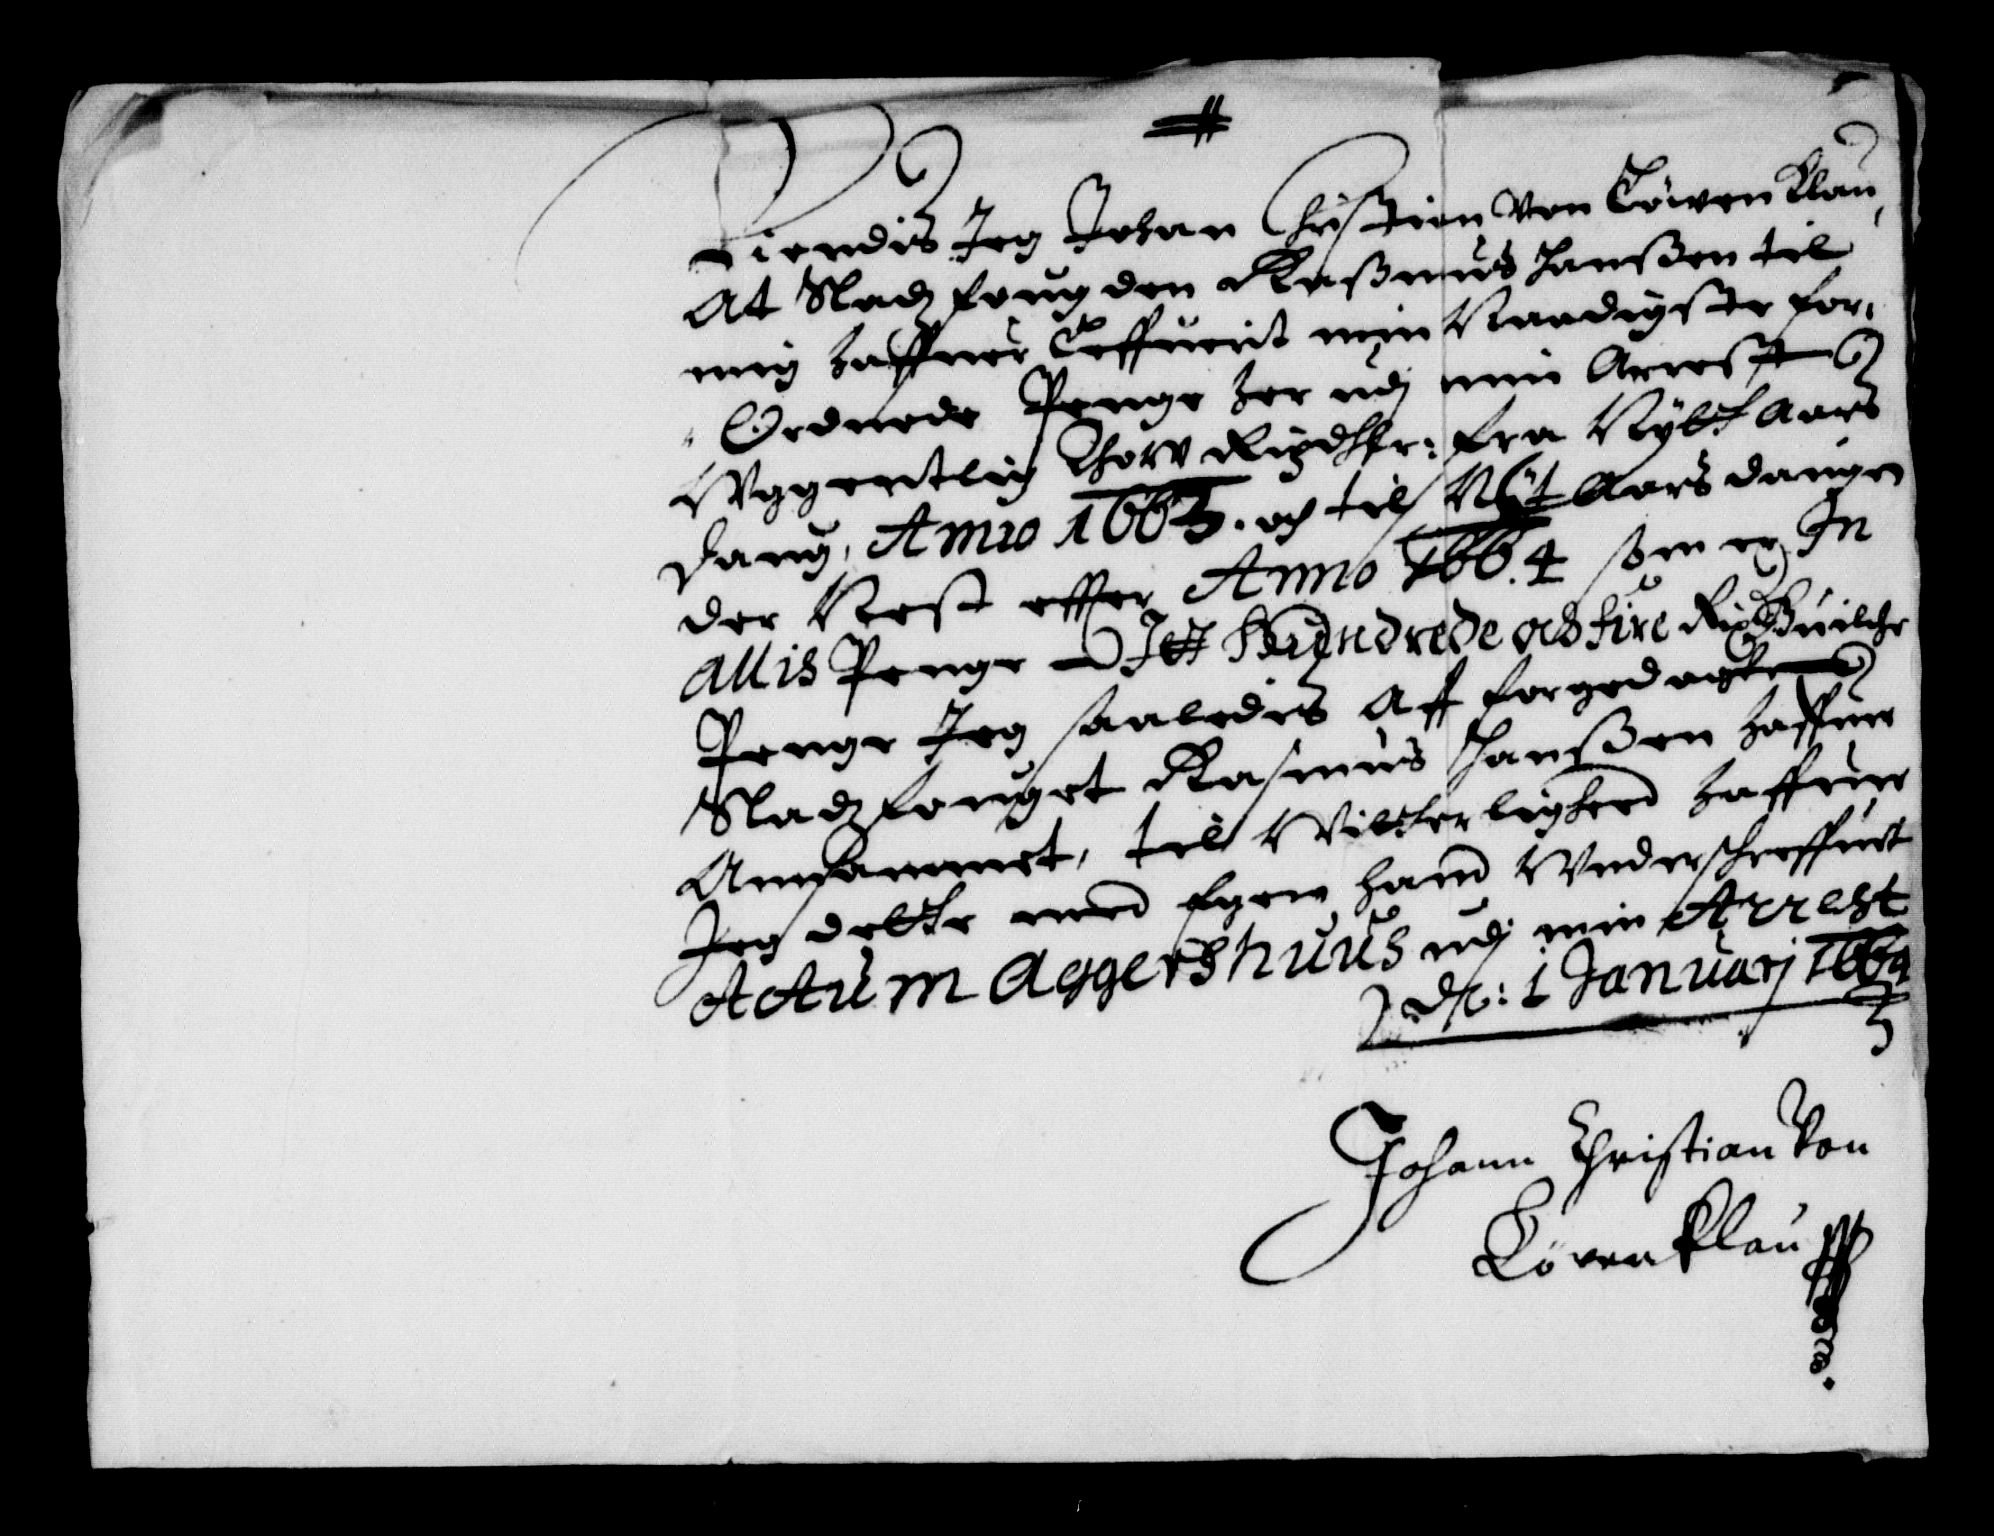 Kiendis Jeg Johan Christian Von Löwen Klau,
At Sladz fougden Rasmus Hanssen til
mig haffuer Leffuerit min Naadigste for-
Ordnede Penge her udj min Arrest
Uggentlig Thow Rixdlr: fra Nytt Aars
Daug, Anno 1663. och til Nyt Aars daugen
der Nest effter Anno 1664 som er In
allis Penge Jtt Hundrede och fire Rix huilche
Penge Jeg saaledis Aff forgedagte
Sladz fouget Rasmus Hanssen haffuer
Annammet, til Witterlighed haffuer
Jeg dette med Egen haand Underschreffuet
Actum Aggershuus udj min Arrest
d: 1 Januarj 1664
Johann Christian Von
Löwenklau